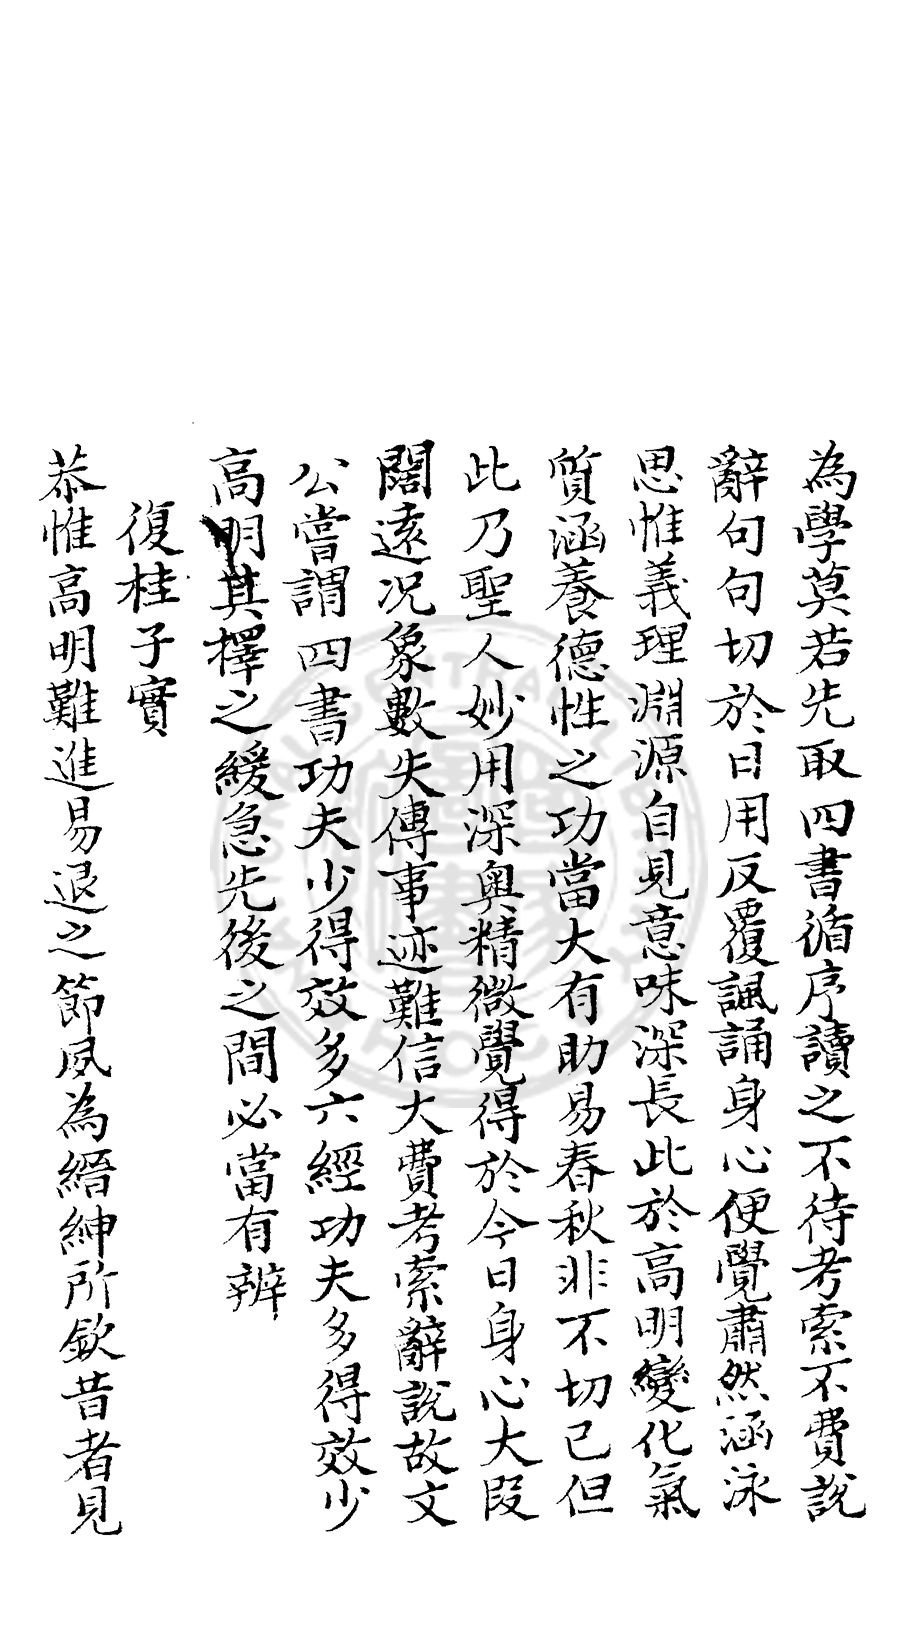 為學莫若先取四書循序讀之不待考索不費說
辭句句切於日用反覆諷誦身心便覺肅然涵泳
思惟義理淵源自見意味深長此於高明變化氣
質涵養德性之功當大有助易春秋非不切己但
此乃聖人妙用深奧精微覺得於今日身心大段
闊遠况象數失傳事迹難信大費考索辭說故文
公嘗謂四書功夫少得效多六經功夫多得效少
高明其擇之緩急先後之間必當有辨
復桂子實
恭惟高明難進易退之節夙為縉紳所欽昔者見